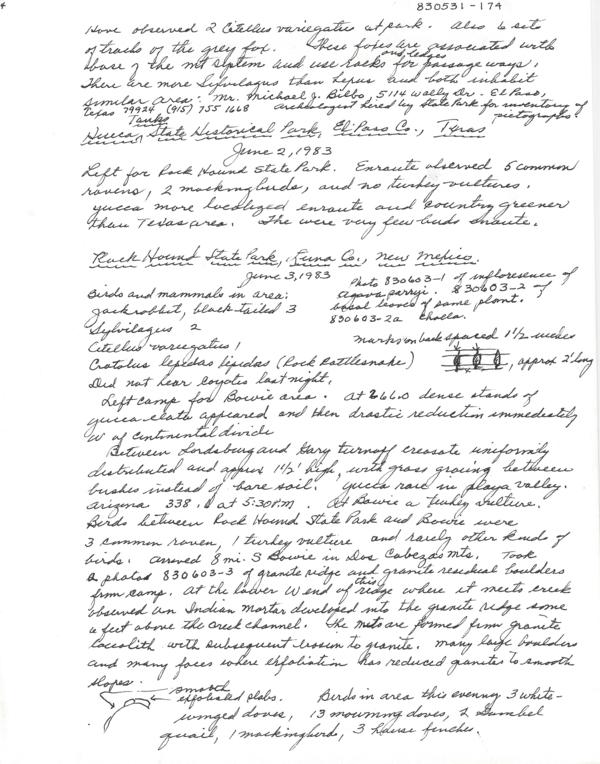 4
830531-174
Have observed 2 Citellus variegatus at park. Also 6 sets
of tracks of the grey fox. These foxes are associated with
base of the mt system and use rocks and ledges for passage ways.
There are more Sylvilagus than Lepus and both inhabit
similar area. Mr. Michael J. Bilbo, 5114 Wally Dr. El Paso,
Texas 79924 (915) 755 1668 archeologist hired by State Park for inventory of
pictographs.
Hueco Tanks State Historical Park, El Paso Co., Texas
June 2, 1983
Left for Rock Hound State Park. Enroute observed 5 common
ravens, 2 mockingbirds, and no turkey vultures.
yucca more localized enroute and country greener
than Texas area. The were very few birds enroute.
Rock Hound State Park, Luna Co., New Mexico.
June 3, 1983
Photo 830603-1 of infloresence of
Agava parryi. 830603-2 of
basal leaves of same plant.
830603-2a Cholla.
Birds and mammals in area:
Jackrabbit, black tailed 3
Sylvilagus 2
Citellus variegatus 1
Crotolus lepidas lepidas (Rock Rattlesnake)
marks on back spaced 1 1/2 inches
, approx 2' long
Did not hear coyotes last night.
Left camp for Bowie area. At 266.0 dense stands of
yucca elata appeared and then drastic reduction immediately
W of Continental divide
Between Lordsburg and Gary turnoff creosote uniformly
distributed and approx 1 1/2' high, with grass growing between
bushes instead of bare soil. Yucca rare in playa valley.
Arizona 338. at 5:30 P.M. At Bowie a turkey vulture.
Birds between Rock Hound State Park and Bowie were
3 common raven, 1 turkey vulture and rarely other kinds of
birds. Arrived 8 mi. S Bowie in Dos Cabezas Mts. Took
2 photos 830603-3 of granite ridge and granite residual boulders
from camp. At the lower W end of this ridge where it meets creek
observed an Indian mortar developed into the granite ridge some
6 feet above the creek channel. The mts are formed from granite
laccolith with subsequent erosion to granite. Many large boulders
and many faces where exfoliation has reduced granites to smooth
slopes.
smooth
exfoliated slabs.
Birds in area this evening 3 white-
winged doves, 13 mourning doves, 2 Gambel
quail, 1 mockingbird, 3 house finches.